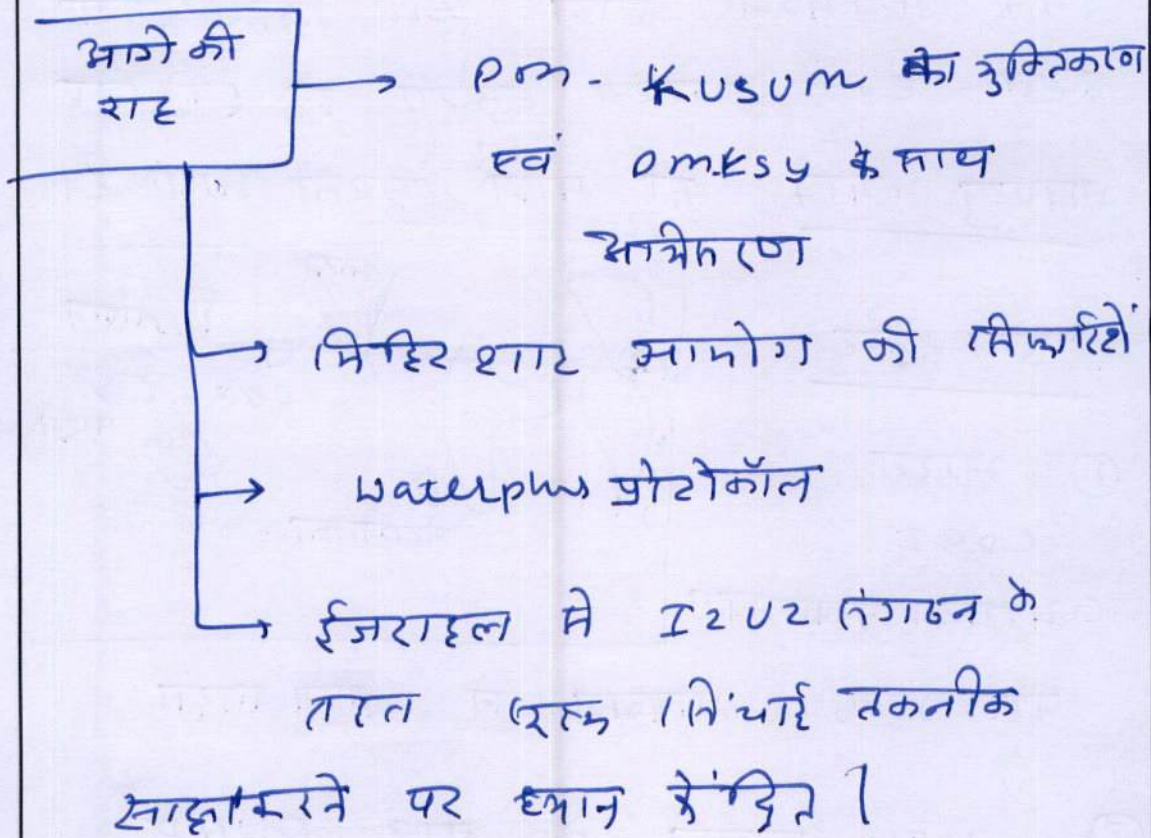 आगे की
राह
Pm - KUSUM का युक्तिकरण
एवं PMKSY के साथ
अभिसरण
मिहिर शाह आयोग की सिफारिशें
Waterplus प्रोटोकॉल
ईजराइल से I2U2 संगठन के
तहत सूक्ष्म सिंचाई तकनीक
साझा करने पर ध्यान केंद्रित।